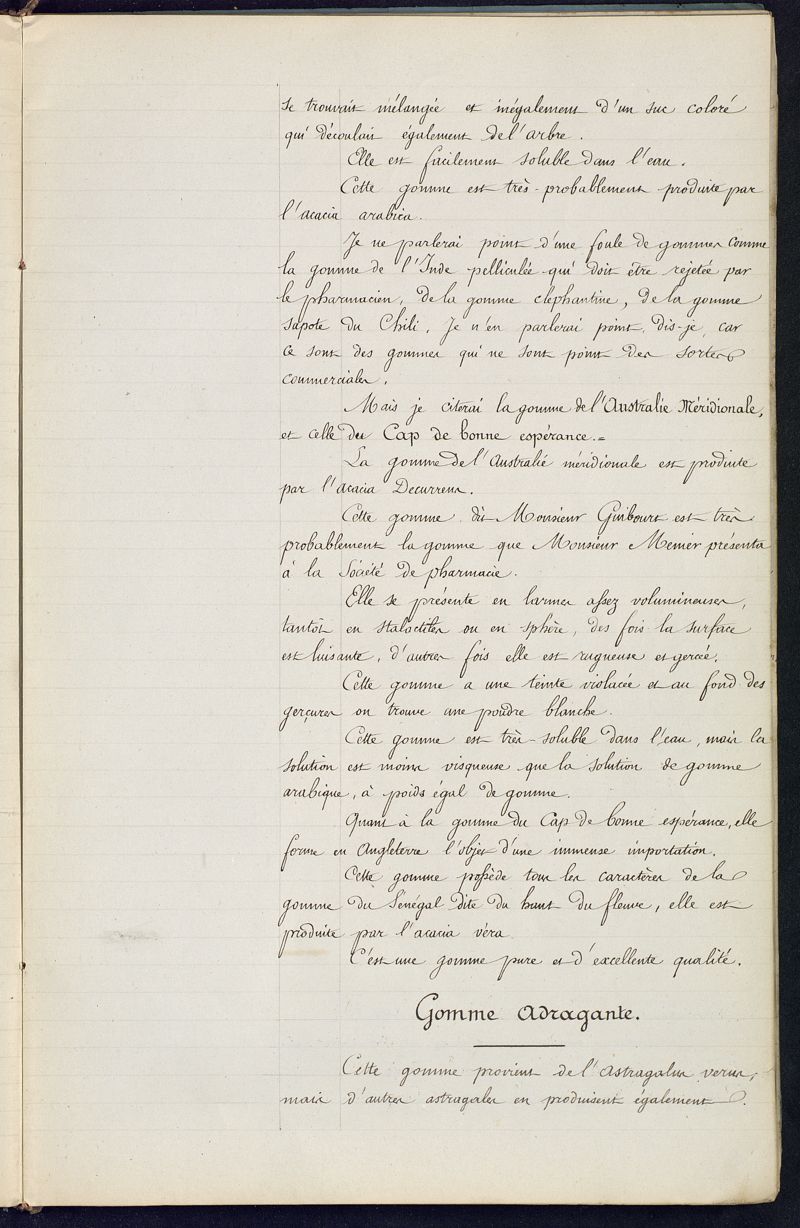 se trouvait mélangée et inégalement d'un suc coloré
qui découlait également de l'arbre.
Elle est facilement soluble dans l'eau.
Cette gomme est très-probablement produite par
l'acacia arabica.
Je ne parlerai point d'une foule de gommes comme
la gomme de l'Inde pelliculée qui doit être rejetée par
le pharmacien, de la gomme éléphantine, de la gomme
sapote du Chili. Je n'en parlerai point, dis-je, car
ce sont des gommes qui ne sont point des sortes
commerciales.
Mais je citerai la gomme de l'Australie Méridionale,
et celle du Cap de bonne espérance.=
La gomme de l'Australie méridionale est produite
par l'acacia Decurrens.
Cette gomme dit Monsieur Guibourt est très
probablement la gomme que Monsieur Menier présenta
à la Société de pharmacie.
Elle se présente en larmes assez volumineuses,
tantôt en stalactites ou en sphère, des fois la surface
est luisante, d'autres fois elle est rugueuse et gercée.
Cette gomme a une teinte violacée et au fond des
gerçures on trouve une poudre blanche.
Cette gomme est très-soluble dans l'eau, mais la
solution est moins visqueuse que la solution de gomme
arabique, à poids égal de gomme.
Quant à la gomme du Cap de bonne espérance, elle
forme en Angleterre l'objet d'une immense importation.
Cette gomme possède tous les caractères de la
gomme du Sénégal dite du haut du fleuve, elle est
produite par l'acacia véra
C'est une gomme pure et d'excellente qualité.
Gomme adragante.
Cette gomme provient de l'astragalus verus,
mais d'autres astragales en produisent également.